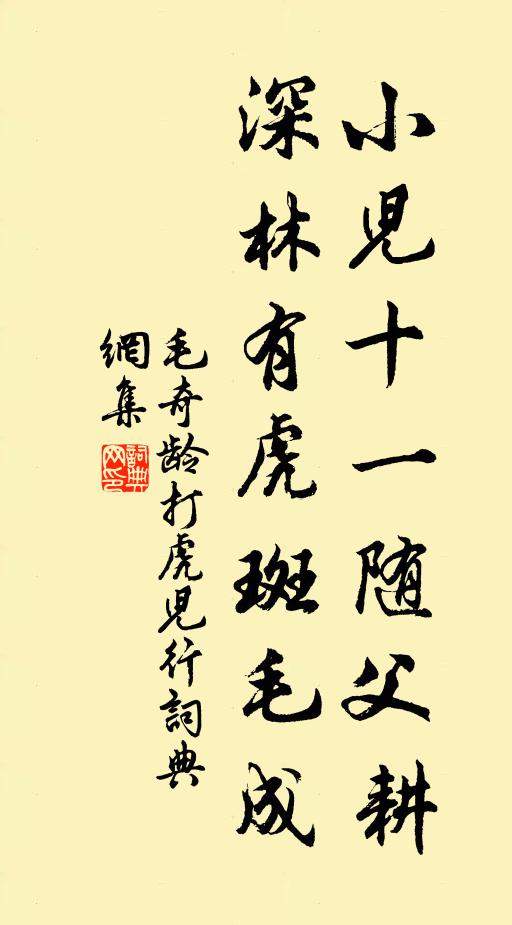 小児十一随父耕
深林有虎斑毛成
毛奇齡打虎児行詞典
網集
詞典
网印